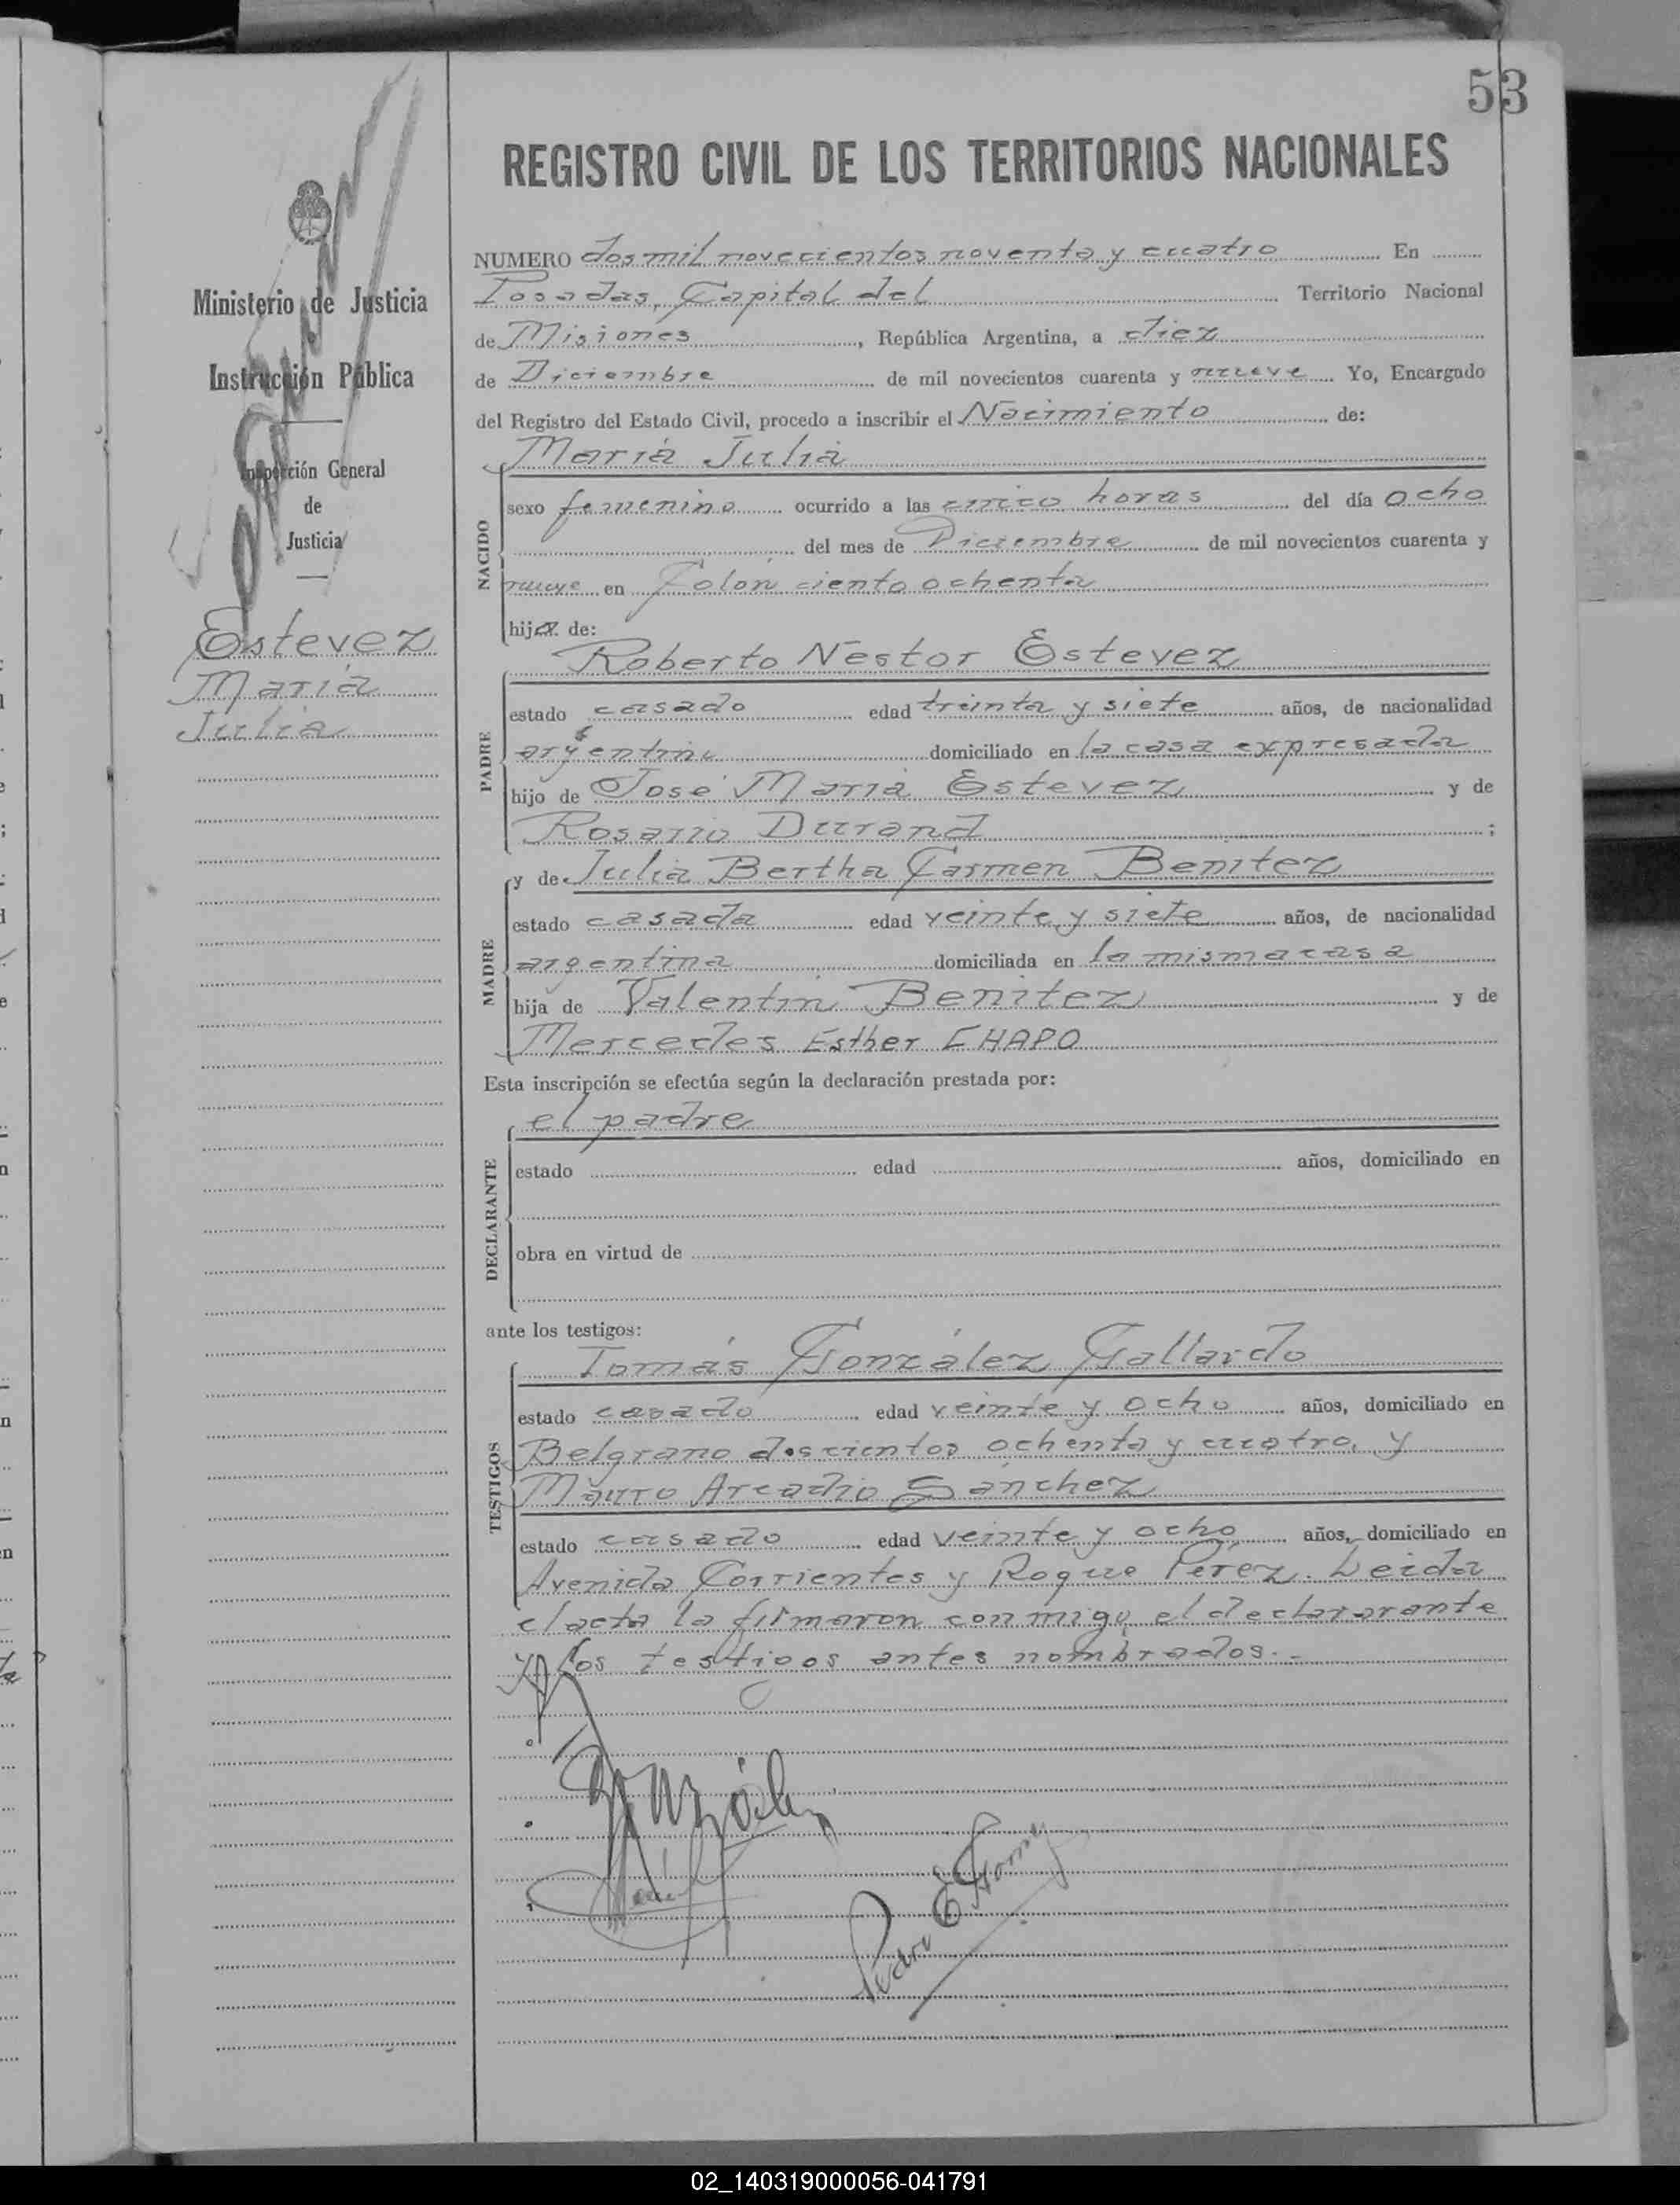 53
REGISTRO CIVIL DE LOS TERRITORIOS NACIONALES
Ministerio de Justicia
Instrucción Pública
Inspección General
de
Justicia
Estevez
María
Julia
NUMERO dos mil novecientos noventa y cuatro En
Posadas, Capital del Territorio Nacional
de Misiones, República Argentina, a diez
de Diciembre de mil novecientos cuarenta y nueve Yo, Encargado
del Registro del Estado Civil, procedo a inscribir el Nacimiento de:
María Julia
NACIDO
sexo femenino ocurrido a las cinco horas del día ocho
del mes de Diciembre de mil novecientos cuarenta y
nueve en Colón ciento ochenta
hija de:
Roberto Nestor Estevez
PADRE
estado casado edad treinta y siete años, de nacionalidad
argentino domiciliado en la casa expresada
hijo de José María Estevez y de
Rosario Durand ;
y de Julia Bertha Carmen Benitez
MADRE
estado casada edad veinte y siete años, de nacionalidad
argentina domiciliada en la misma casa
hija de Valentín Benitez y de
Mercedes Esther CHAPO
Esta inscripción se efectúa según la declaración prestada por:
el padre
DECLARANTE
estado edad años, domiciliado en
obra en virtud de
ante los testigos:
Tomás González Gallardo
TESTIGOS
estado casado edad veinte y ocho años, domiciliado en
Belgrano doscientos ochenta y cuatro, y
Mauro Arcadio Sánchez
estado casado edad veinte y ocho años, domiciliado en
Avenida Corrientes y Roque Pérez. Leida
el acta la firmaron conmigo el declararante
y los testigos antes nombrados.-
02_140319000056-041791